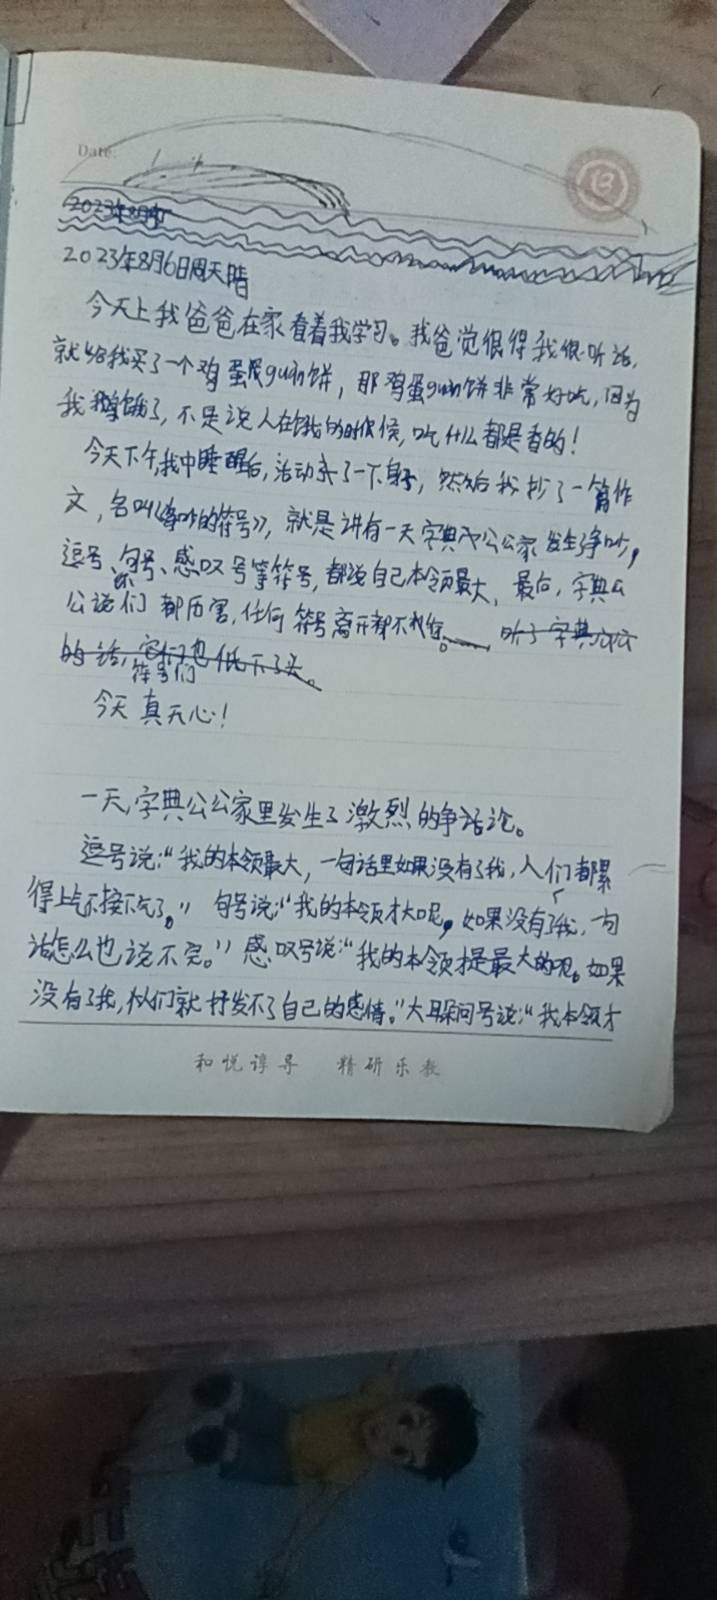 Date:
2023年8月6日周天 晴
今天上我爸爸在家看着我学习。我爸觉很得我很听话,
就给我买了一个鸡蛋guan饼,那鸡蛋guan饼非常好吃,因为
我饿了,不是说人在饿的时候候,吃什么都是香的!
今天下午,我中睡醒后,活动了一下身子,然后我抄了一篇作
文,名叫《争吵的符号》,就是讲有一天字典公公家发生争吵,
逗号、句号、感叹号等符号,都说自己本领最大,最后,字典公
公说你们都历害,任何符号离开都不行。听了字典公公
的话,符号们也低下了头。
今天真天心!
一天,字典公公家里发生了激烈的争论。
逗号说:“我的本领最大,一句话里如果没有了我,人们都累
得上气不接下气了。”句号说:“我的本领才大呢,如果没有了我,一句
话怎么也说不完。”感叹号说:“我的本领才是最大的呢。如果
没有了我,们就抒发不了自己的感情。”大耳朵问号说:“我本领才
和悦谆寻 精研乐教